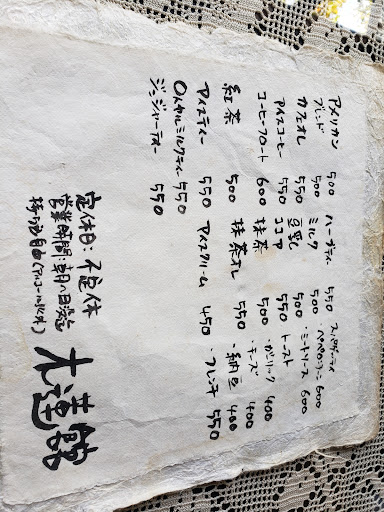 アメリカン 500
ブレンド 500
カフェオレ 550
アイスコーヒー 550
コーヒーフロート 600
紅茶 500
アイスティー 550
ロイヤルミルクティー 550
ジンジャーティー 550
ハーブティー 550
ミルク 500
豆乳 500
ココア 550
抹茶 500
抹茶オレ 550
アイスクリーム 450
スパゲティ
ペペロンチーノ 600
・ミートソース 600
トースト
・ガーリック 400
・チーズ 400
・納豆 400
・フレンチ 550
定休日：不定休
営業時間：朝八日没迄
持ち込み自由（アルコール以外）
木蓮館